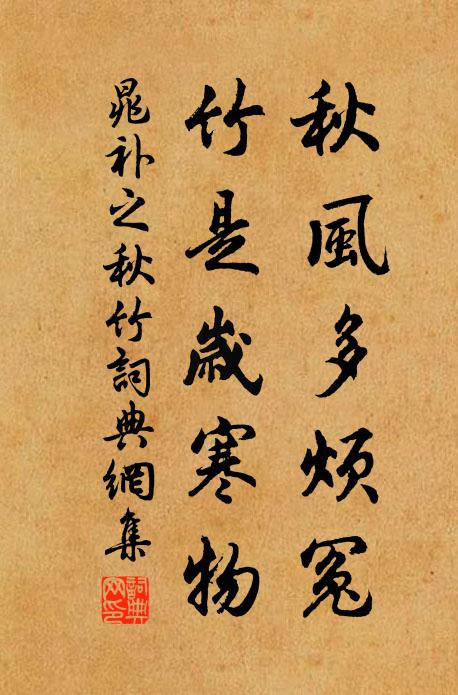 秋風多煩冤
竹是歲寒物
晁补之秋竹詞典網集
詞典
网印